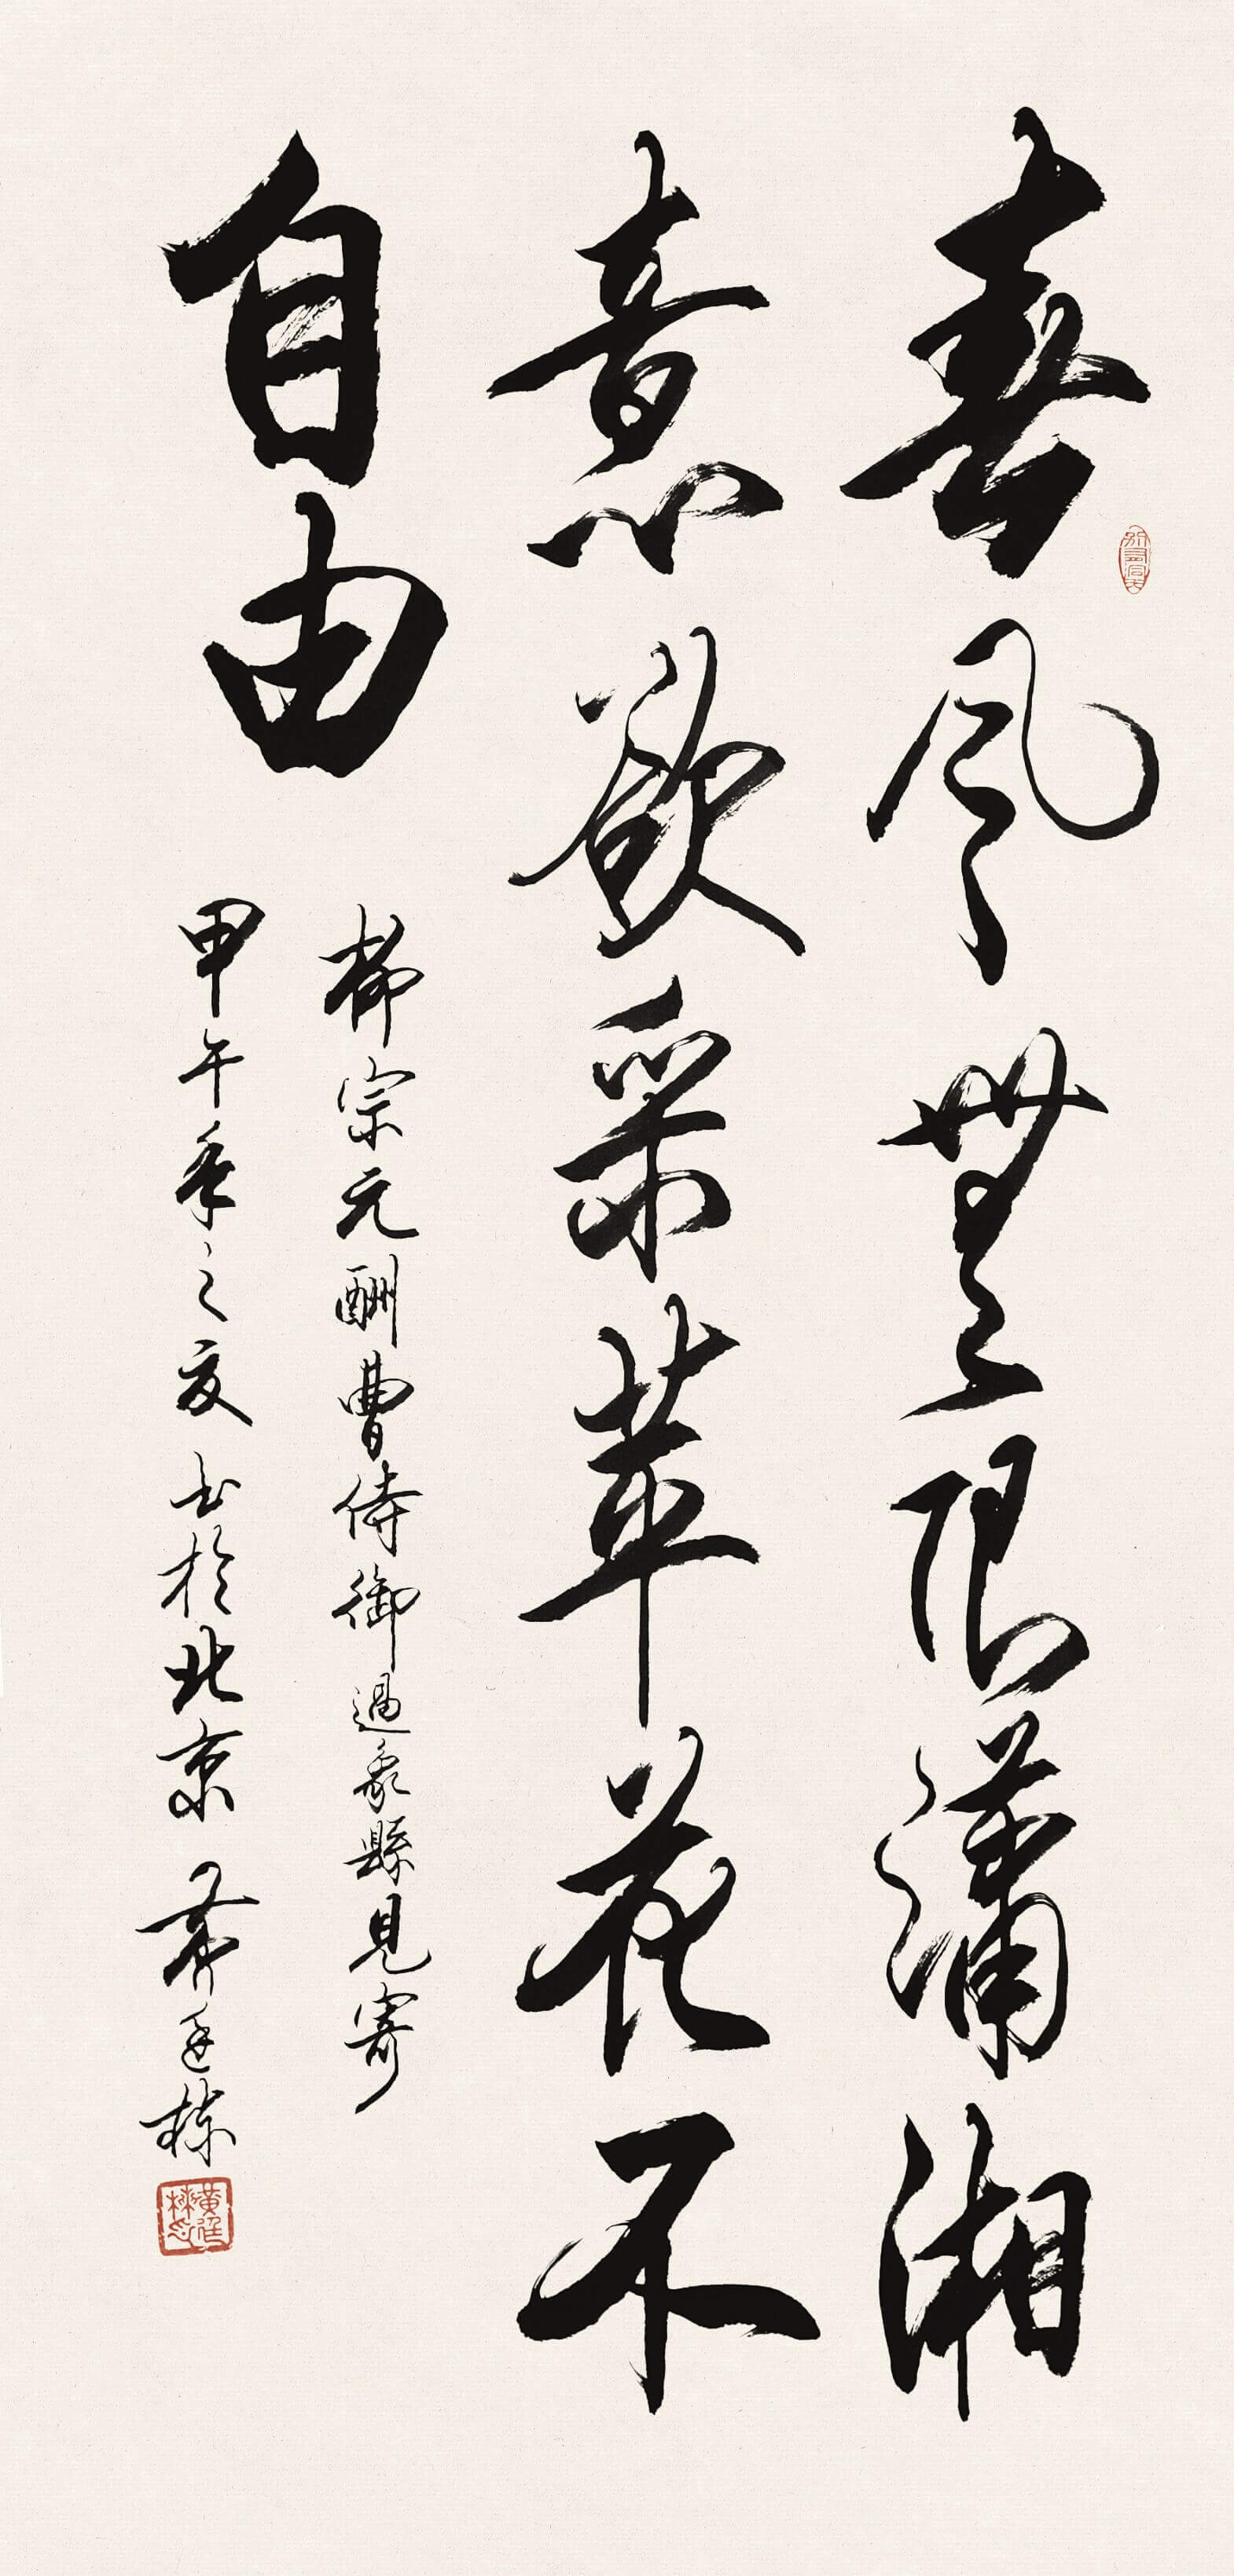 春風無限瀟湘
意欲采苹花不
自由
柳宗元酬曹侍御過象縣見寄
甲午年之夏書於北京黄廷栋